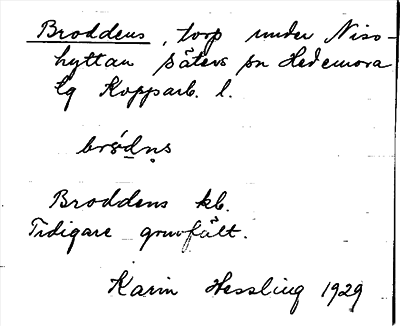 Broddens, torp under Niss-
hyttan Säters sn Hedemora
tg Kopparb. l.
bró̤dn̥s
Broddens kb.
Tidigare gruvfält.
Karin Hessling 1929